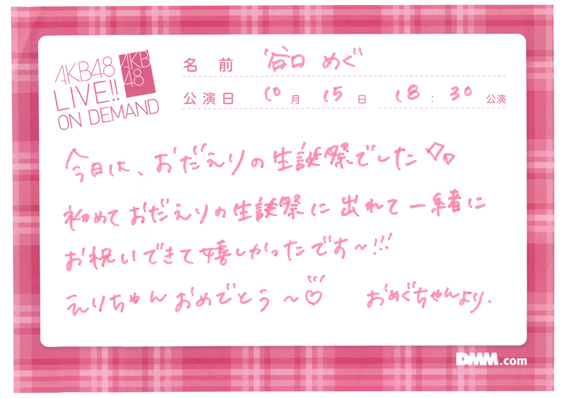 AKB48
LIVE!!
ON DEMAND
AKB
48
名前 谷口 めぐ
公演日 10月 15日 18:30 公演
今日は、おだえりの生誕祭でした
初めておだえりの生誕祭に出れて一緒に
お祝いできて嬉しかったです〜!!!
えりちゃんおめでとう〜♡ おめぐちゃんより.
DMM.com